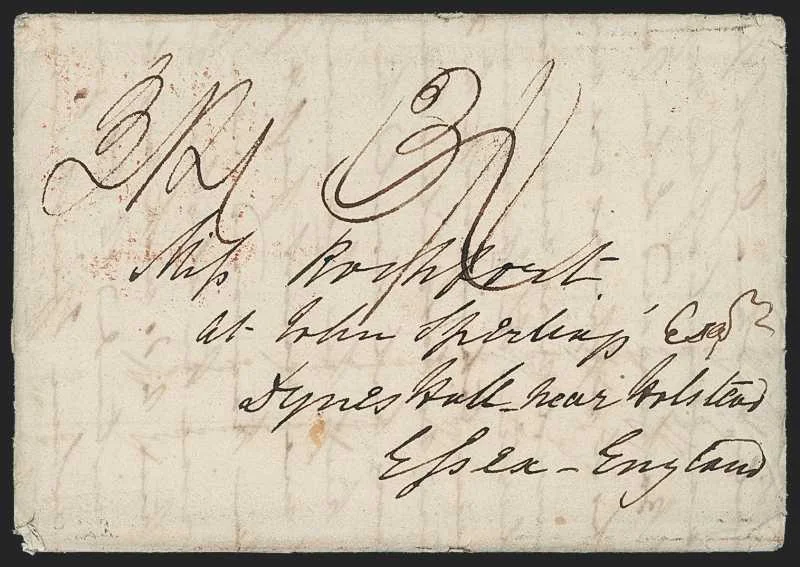 3/2 3/
Miss Rochfort
at John Sperling's Esqr
Dynes Hall near Holstead
Essex - England